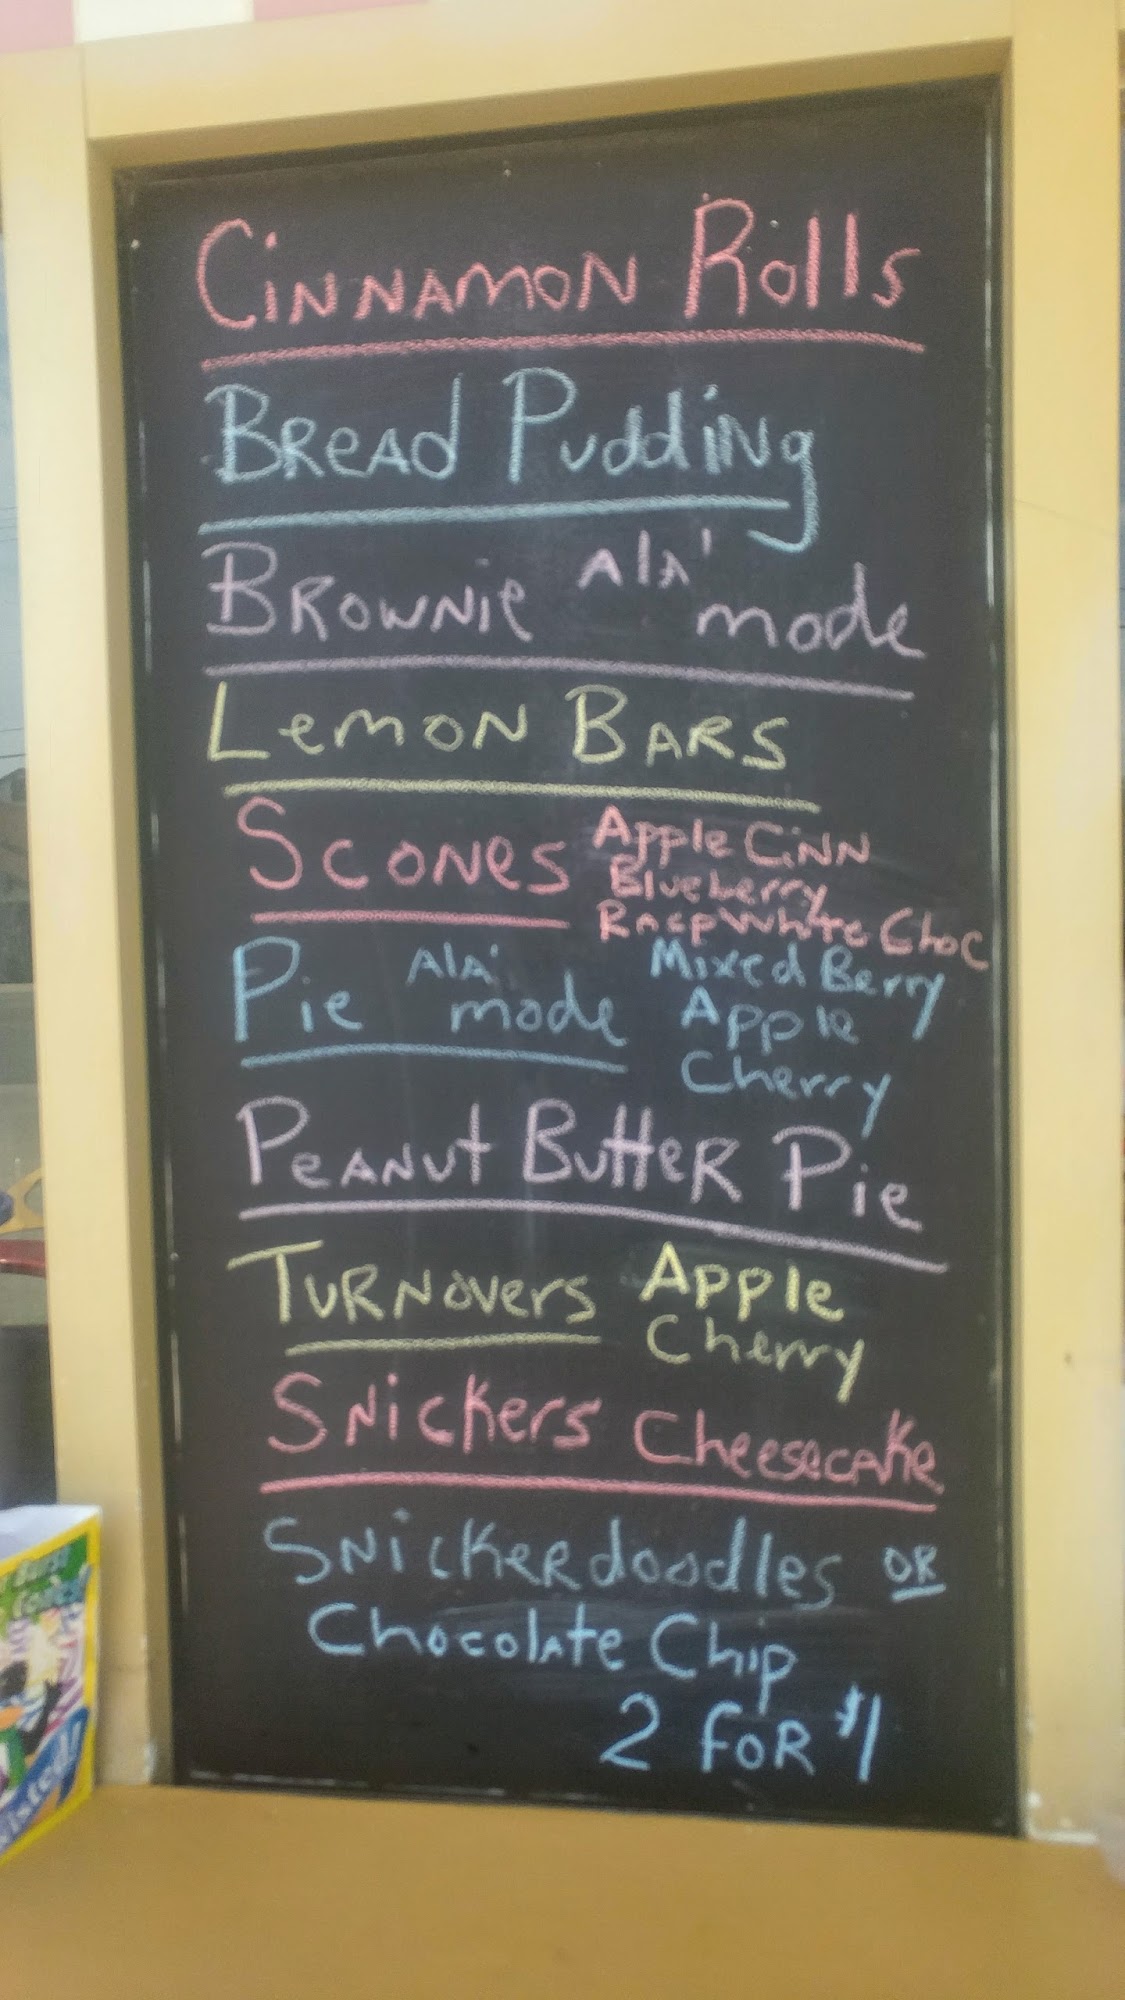 Cinnamon Rolls
Bread Pudding
Brownie Ala' mode
Lemon Bars
Scones Apple Cinn
Blueberry
Rasp White Choc
Pie Ala' mode Mixed Berry
Apple
Cherry
Peanut Butter Pie
Turnovers Apple
Cherry
Snickers Cheesecake
Snickerdoodles OR
Chocolate Chip
2 FOR $1